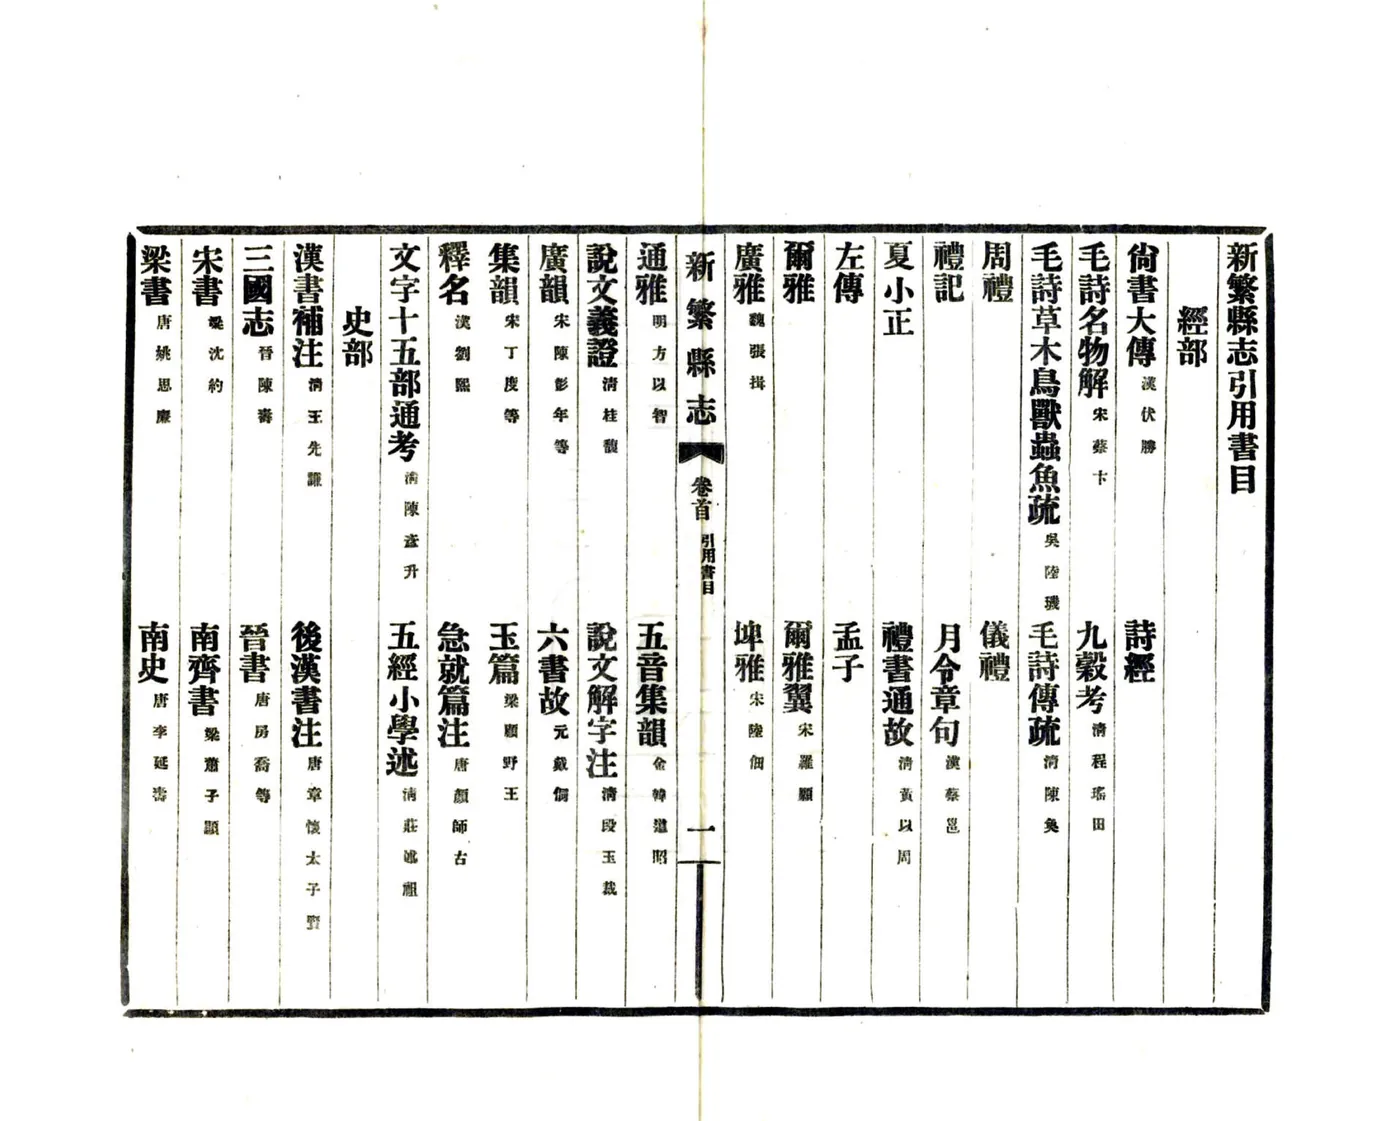 新繁縣志引用書目
經部
尙書大傳 漢伏勝 詩經
毛詩名物解 宋蔡卞 九穀考 清程瑤田
毛詩草木鳥獸蟲魚疏 吳陸璣 毛詩傳疏 清陳奐
周禮 儀禮
禮記 月令章句 漢蔡邕
夏小正 禮書通故 清黃以周
左傳 孟子
爾雅 爾雅翼 宋羅願
廣雅 魏張揖 埤雅 宋陸佃
新繁縣志 卷首 引用書目 一
通雅 明方以智 五音集韻 金韓道昭
說文義證 清桂馥 說文解字注 清段玉裁
廣韻 宋陳彭年等 六書故 元戴侗
集韻 宋丁度等 玉篇 梁顧野王
釋名 漢劉熙 急就篇注 唐顏師古
文字十五部通考 清陳彥升 五經小學述 清莊述祖
史部
漢書補注 清王先謙 後漢書注 唐章懷太子賢
三國志 晉陳壽 晉書 唐房喬等
宋書 梁沈約 南齊書 梁蕭子顯
梁書 唐姚思廉 南史 唐李延壽